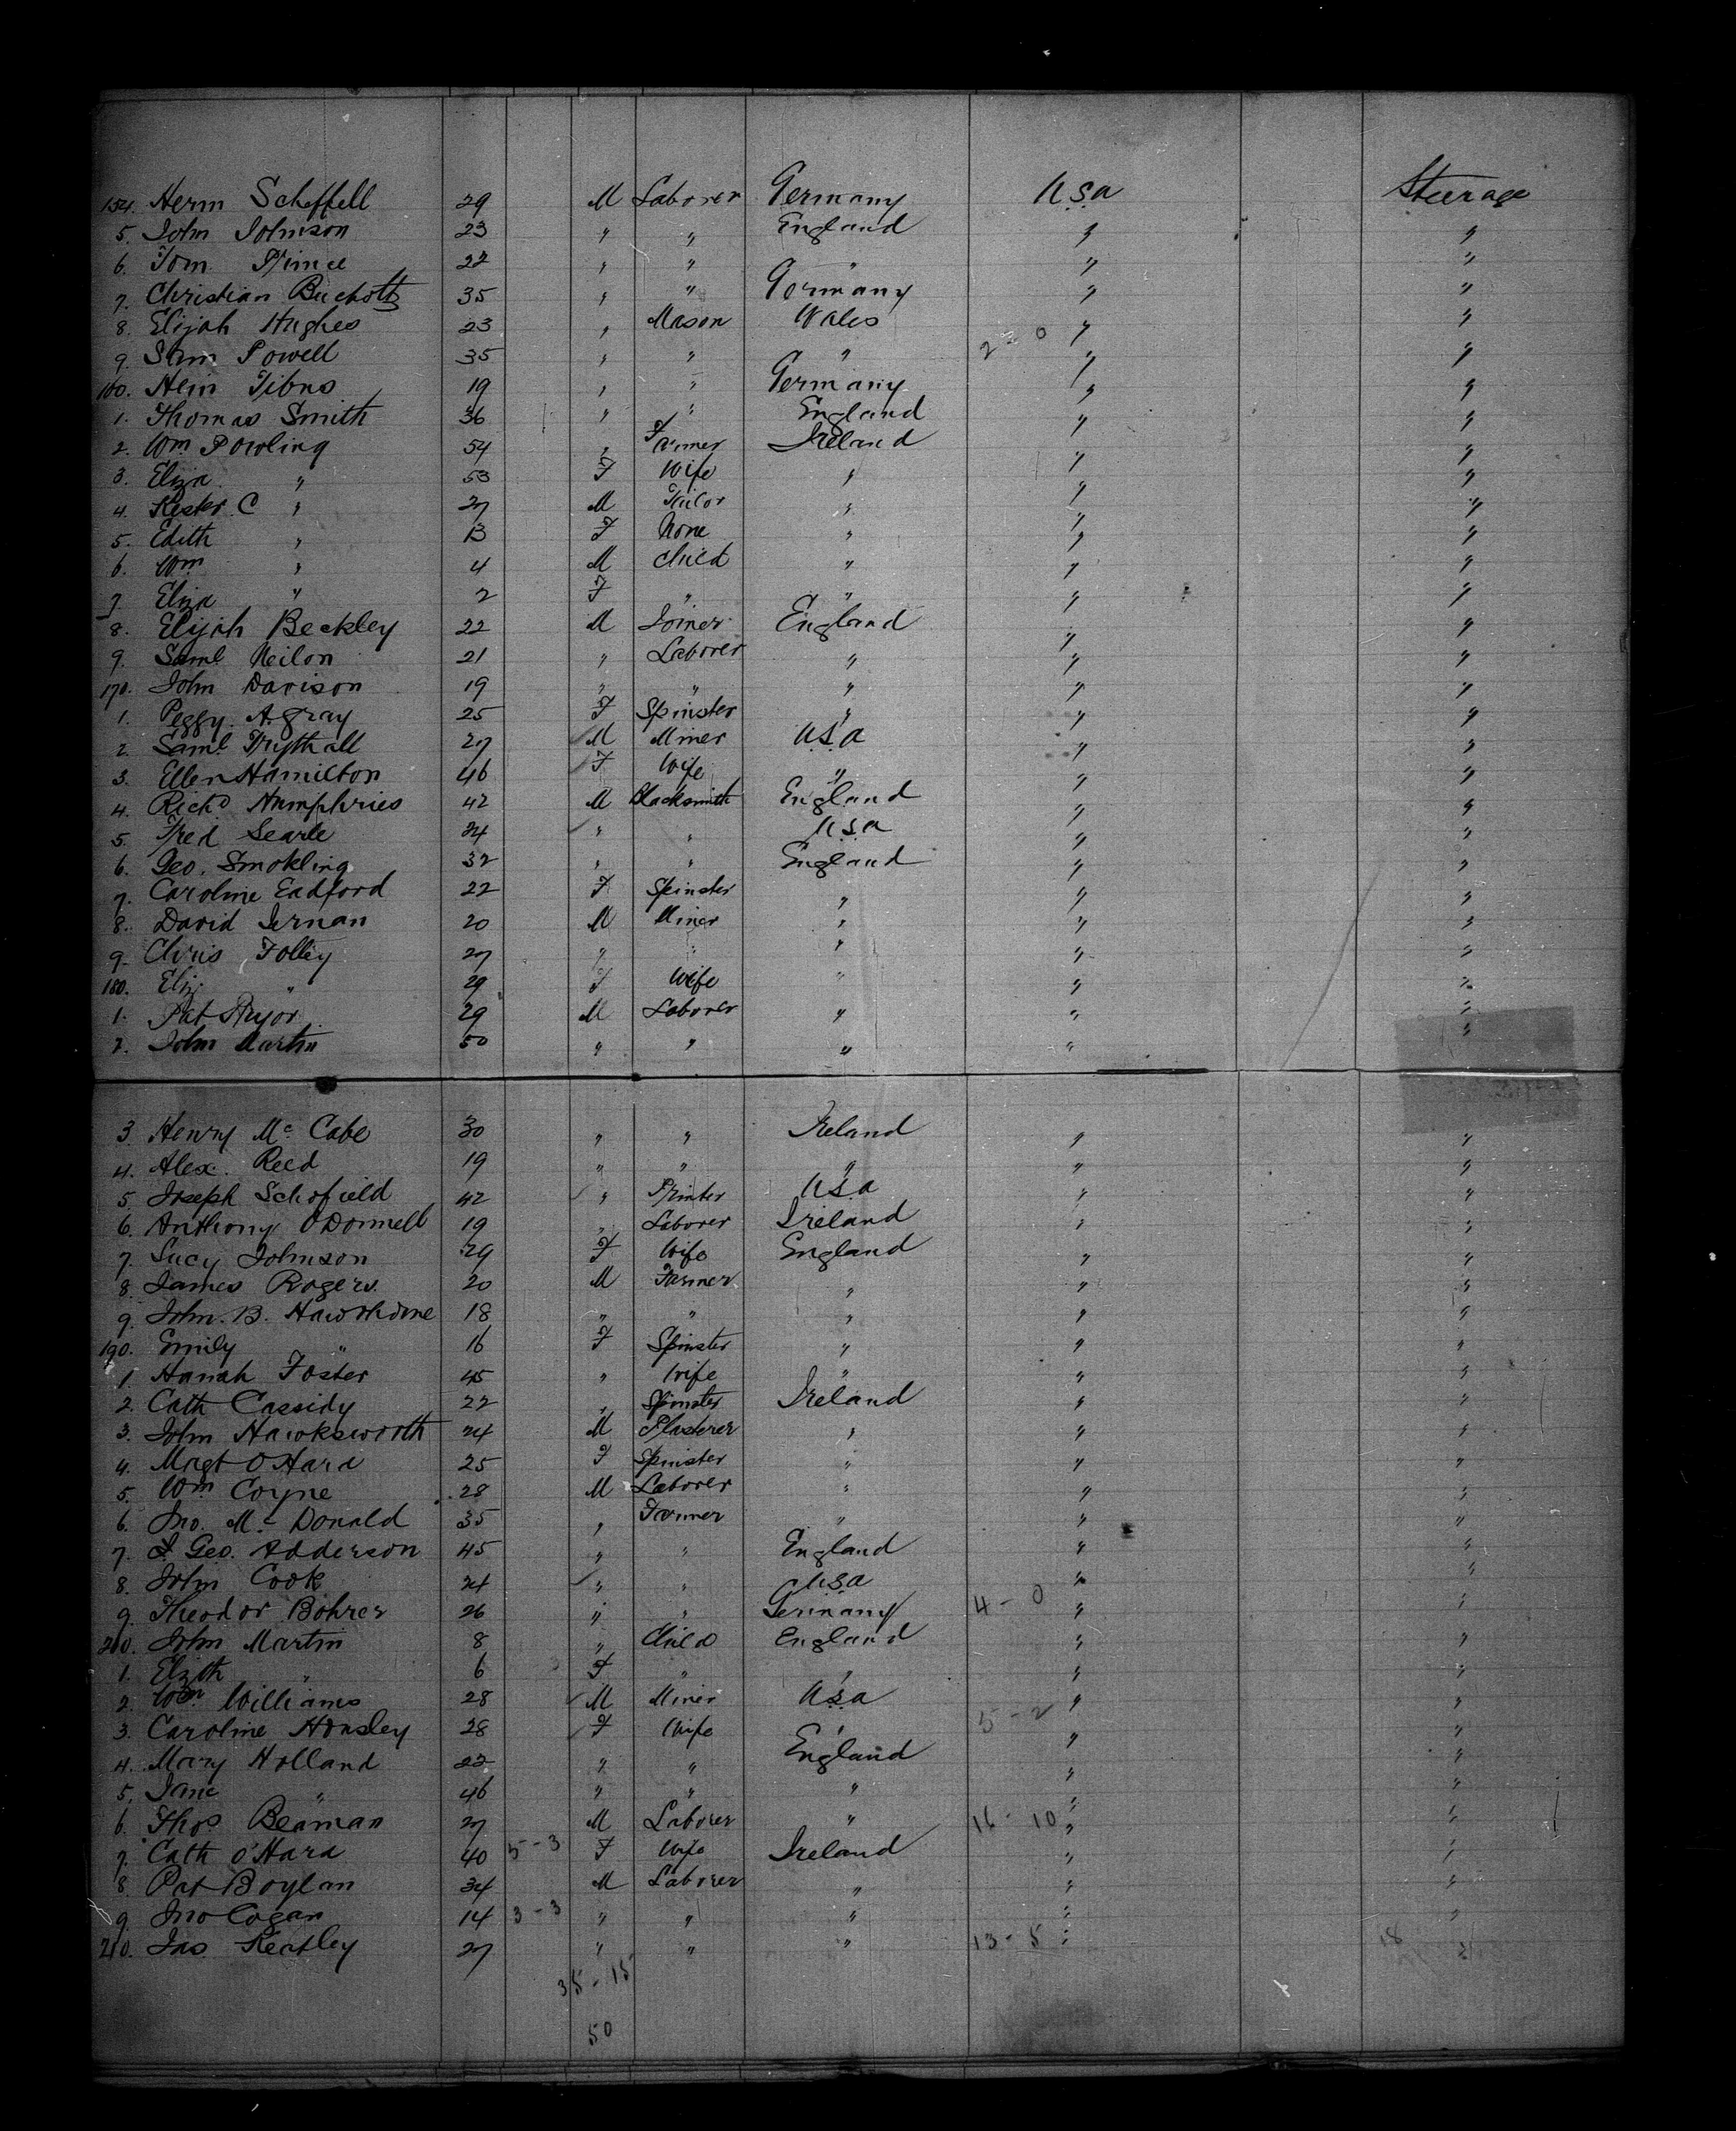 154. Herm Scheffell 29 M Laborer Germany U.S.a Steerage
5. John Johnson 23 " " England " "
6. Tom Prince 22 " " " " "
7. Christian Bucholtz 35 " " Germany " "
8. Elijah Hughes 23 " Mason Wales " "
9. Sam Powell 35 " " " 2 - 0 " "
160. Hein Tibns 19 " " Germany " "
1. Thomas Smith 36 " " England " "
2. Wm Powling 54 " Farmer Ireland " "
3. Eliza " 53 F Wife " " "
4. Kester C " 27 M Tailor " " "
5. Edith " 13 F None " " "
6. Wm " 4 M Child " " "
7. Eliza " 2 F " " " "
8. Elijah Beckley 22 M Joiner England " "
9. Saml Neilon 21 " Laborer " " "
170. John Davison 19 " " " " "
1. Peggy A. Gray 25 F Spinster " " "
2. Saml Trythall 27 M Miner U.S.a " "
3. Ellen Hamilton 46 F Wife " " "
4. Richd Humphries 42 M Blacksmith England " "
5. Fred Searle 24 " " U.S.a " "
6. Geo. Smokling 32 " " England " "
7. Caroline Eadford 22 F Spinster " " "
8. David 20 M Miner " " "
9. Chris Folley 27 " " " " "
180. Eliz " 29 F Wife " " "
1. Pat Pryor 29 M Laborer " " "
2. John Martin 50 " " " " "
3. Henry Mc Cabe 30 " " Ireland " "
4. Alex. Reed 19 " " " " "
5. Joseph Schofield 42 " Printer U.S.a " "
6. Anthony O'Donnell 19 " Laborer Ireland " "
7. Lucy Johnson 29 F Wife England " "
8. James Rogers 20 M Farmer " " "
9. John. B. Hawthorne 18 " " " " "
190. Emily " 16 F Spinster " " "
1. Hanah Foster 45 " Wife " " "
2. Cath Cassidy 22 " Spinster Ireland " "
3. John Hawksworth 24 M Plasterer " " "
4. Magt O'Hara 25 F Spinster " " "
5. Wm Coyne 28 M Laborer " " "
6. Jno. Mc Donald 35 " Farmer " " "
7. J. Geo. Adderson 45 " " England " "
8. John Cook 24 " " U.S.a " "
9. Theodor Bohrer 26 " " Germany 4 - 0 " "
200. John Martin 8 " Child England " "
1. Elizth " 6 F " " " "
2. Wm Williams 28 M Miner U.S.a " "
3. Caroline Housley 28 F Wife " 5 - 2 " "
4. Mary Holland 22 " " England " "
5. Jane " 46 " " " " "
6. Thos Beaman 27 M Laborer " 16 - 10 " "
7. Cath O'Hara 40 5 - 3 F Wife Ireland " "
8. Pat Boylan 34 M Laborer " " "
9. Jno Cogan 14 3 - 3 " " " " "
210. Jas. Keatley 27 " " " 13 - 5 " 18 "
35 - 15
50